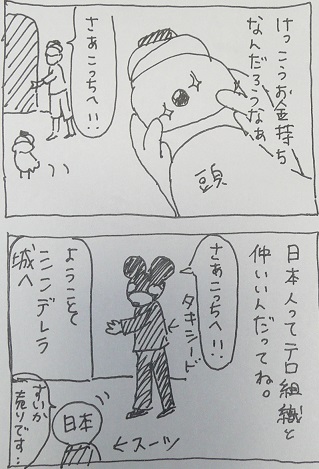 けっこうお金持ち
なんだろうなぁ
頭
さあこっちへ!!
日本人ってテロ組織と
仲いいんだってね。
さあこっちへ!!
タキシード
ようこそ
シンデレラ
城へ
←スーツ
日本
すいか
売りです…